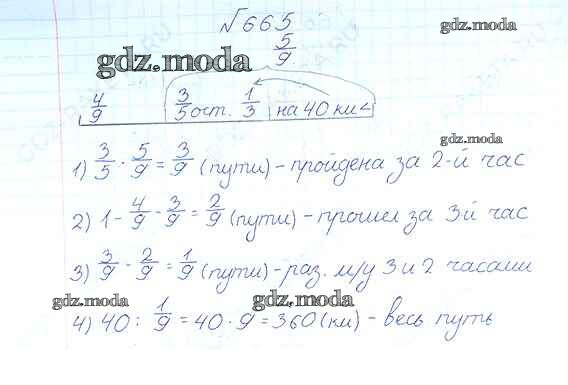 №665
5/9
gdz.moda
gdz.moda
4/9 3/5 ост. 1/3 на 40 км <
gdz.moda
1) 3/5 · 5/9 = 3/9 (пути) – пройдена за 2-й час
2) 1 - 4/9 - 3/9 = 2/9 (пути) – прошел за 3й час
3) 3/9 - 2/9 = 1/9 (пути) – раз. м/у 3 и 2 часами
gdz.moda
gdz.moda
4) 40 : 1/9 = 40 · 9 = 360 (км) – весь путь